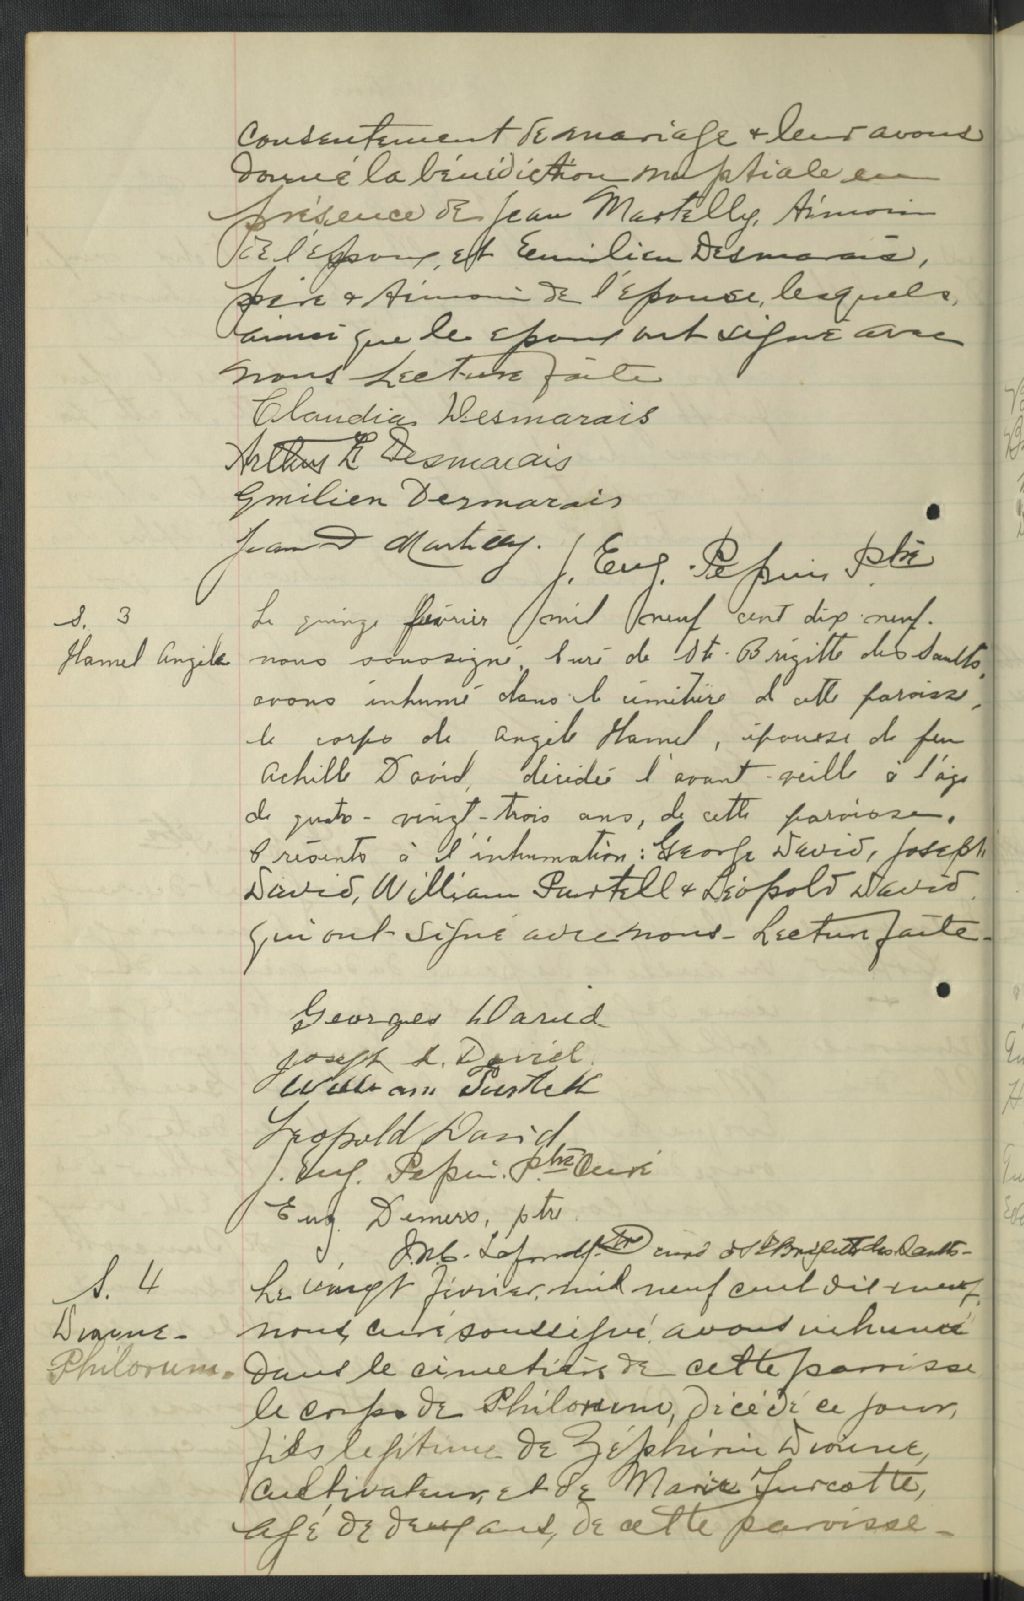 consentement de mariage & leur avons
donné la bénédiction nuptiale en
présence de Jean Martelly, témoin
de l'époux, et Emilien Desmarais,
père & témoin de l'épouse, lesquels,
ainsi que les époux ont signé avec
nous Lecture faite
Claudia Desmarais
Arthur E Desmarais
Emilien Desmarais
Jean D Martelly.
J. Eug. Pepin Ptre
S. 3
Hamel Angèle
Le quinze février mil neuf cent dix-neuf.
nous soussigné, curé de Ste-Brigitte des Saults,
avons inhumé dans le cimetière de cette paroisse,
le corps de Angèle Hamel, épouse de feu
Achille David, décédée l'avant-veille à l'âge
de quatre-vingt-trois ans, de cette paroisse.
Présents à l'inhumation: George David, Joseph
David, William Purtell & Léopold David
qui ont signé avec nous - Lecture faite -
Georges David
Joseph L. David
William Purtell
Leopold David
J. Eug. Pepin. Ptre Curé
Eug. Demers, ptre.
curé de Ste Brigitte des Saults -
S. 4
Dionne -
Philorum.
Le vingt février, mil neuf cent dix neuf,
nous, curé soussigné, avons inhumé
dans le cimetière de cette paroisse
le corps de Philorum, décédé ce jour,
fils légitime de Zéphirin Dionne,
cultivateur, et de Marie Turcotte,
agé de deux ans, de cette paroisse -